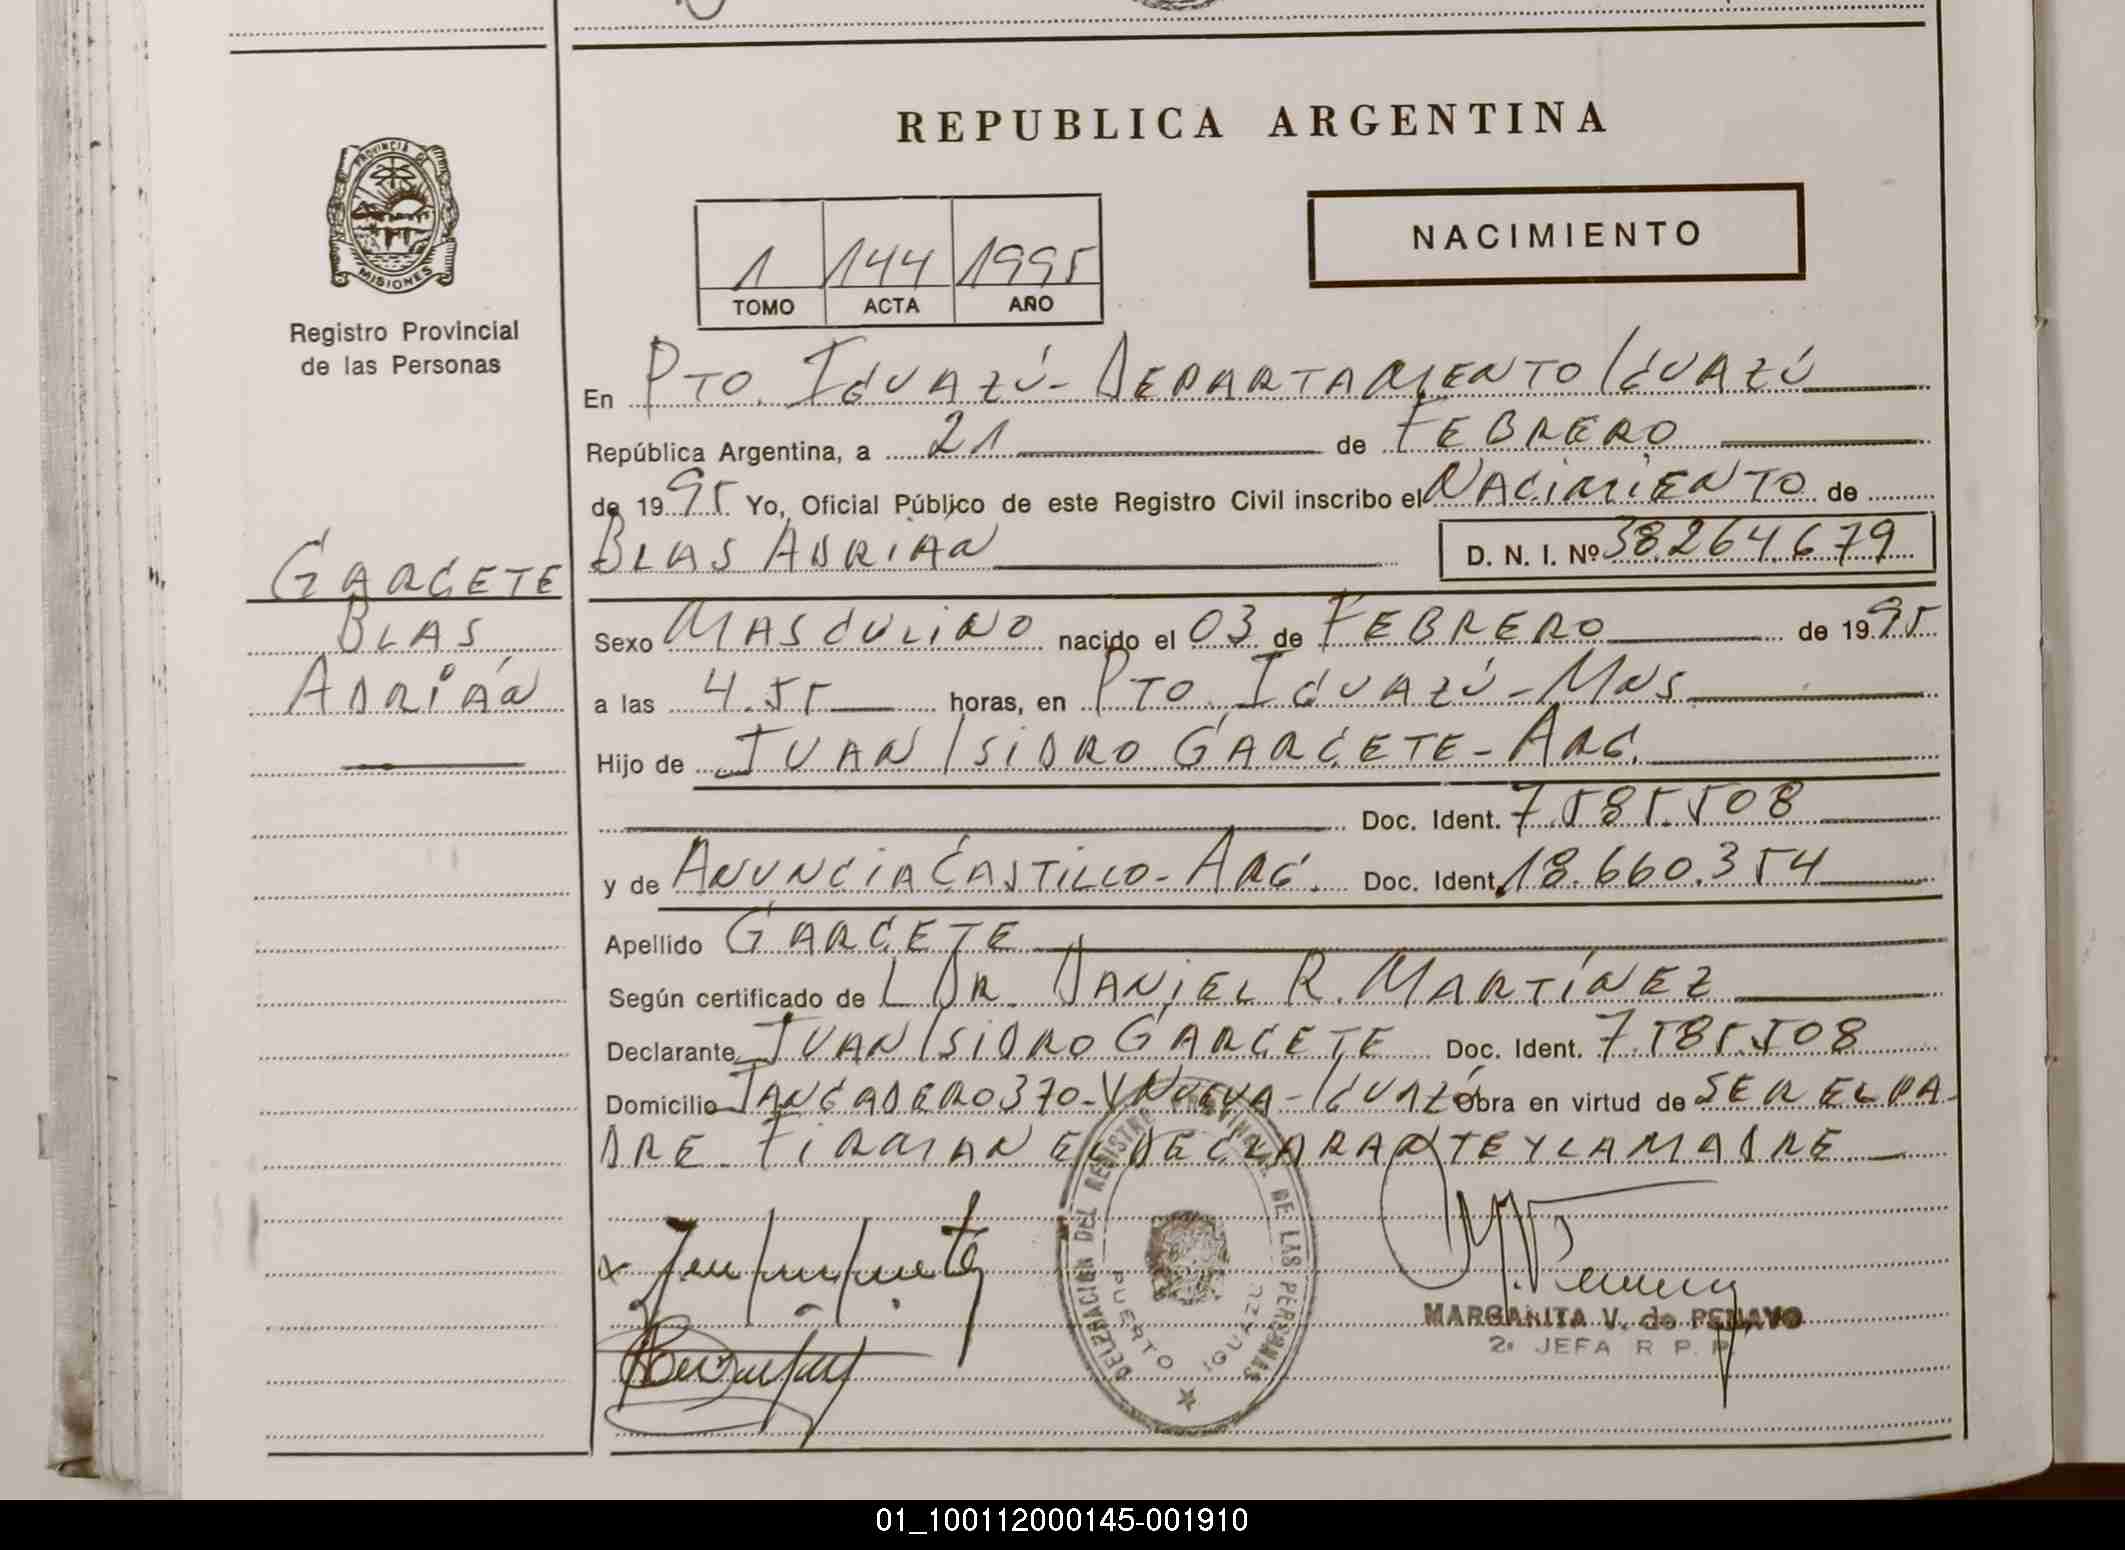 REPUBLICA ARGENTINA
PROVINCIA DE
MISIONES
Registro Provincial
de las Personas
1 144 1995
TOMO ACTA AÑO
NACIMIENTO
En PTO. IGUAZÚ - DEPARTAMENTO IGUAZÚ
República Argentina, a 21 de FEBRERO
de 1995 Yo, Oficial Público de este Registro Civil inscribo el NACIMIENTO de
BLAS ADRIÁN D. N. I. Nº 38.264.679
GARCETE
BLAS
ADRIÁN
Sexo MASCULINO nacido el 03 de FEBRERO de 1995
a las 4.55 horas, en PTO. IGUAZÚ - MNS
Hijo de JUAN ISIDRO GARCETE - ARG.
Doc. Ident. 7.585.508
y de ANUNCIA CASTILLO - ARG. Doc. Ident. 18.660.354
Apellido GARCETE
Según certificado de L DR. DANIEL R. MARTÍNEZ
Declarante JUAN ISIDRO GARCETE Doc. Ident. 7.585.508
Domicilio TANGADERO 370 - V NUEVA - IGUAZÚ Obra en virtud de SER EL PA-
DRE. FIRMAN EL DECLARANTE Y LA MADRE
DELEGACION DEL REGISTRO PROVINCIAL DE LAS PERSONAS
PUERTO IGUAZU
MARGARITA V. de PENAYO
2ª JEFA R. P. P.
01_100112000145-001910